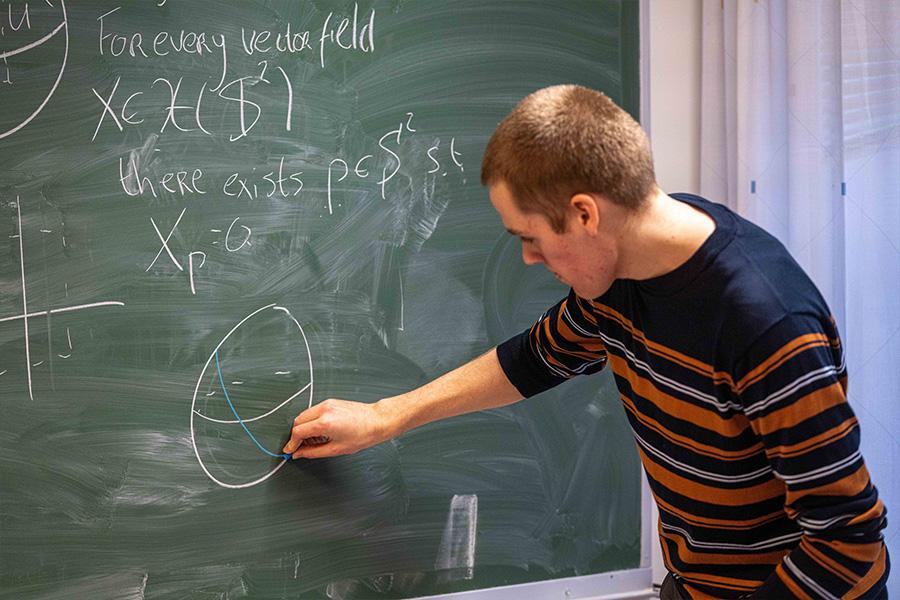 For every vector field
X ∈ 𝔛(S²)
there exists p ∈ S² s.t
X_p = 0